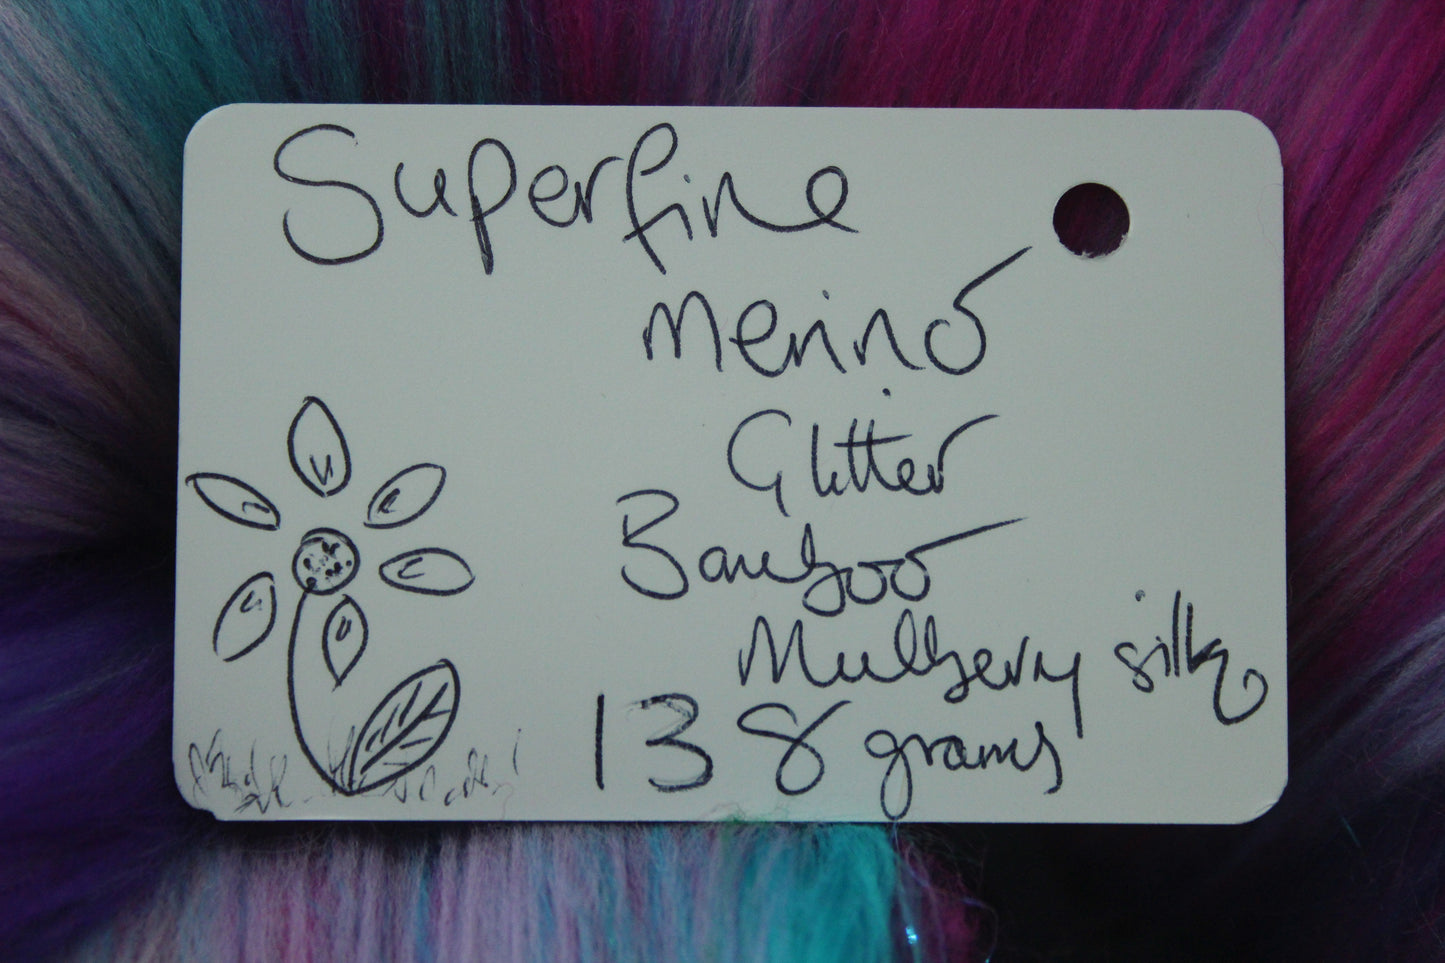 Superfine
merino
Glitter
Bamboo
Mulberry silk
138 grams